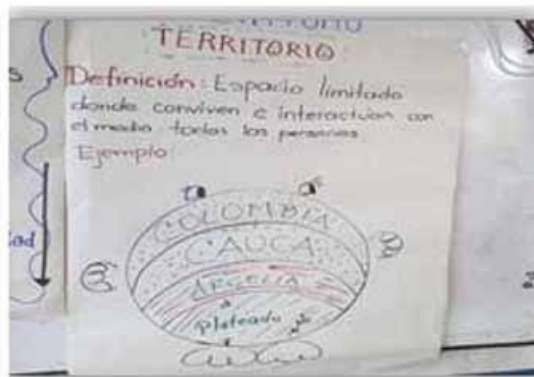 TERRITORIO
Definición: Espacio limitado
donde conviven e interactúan con
el medio todas las personas
Ejemplo:
COLOMBIA
CAUCA
ARGELIA
Plateado